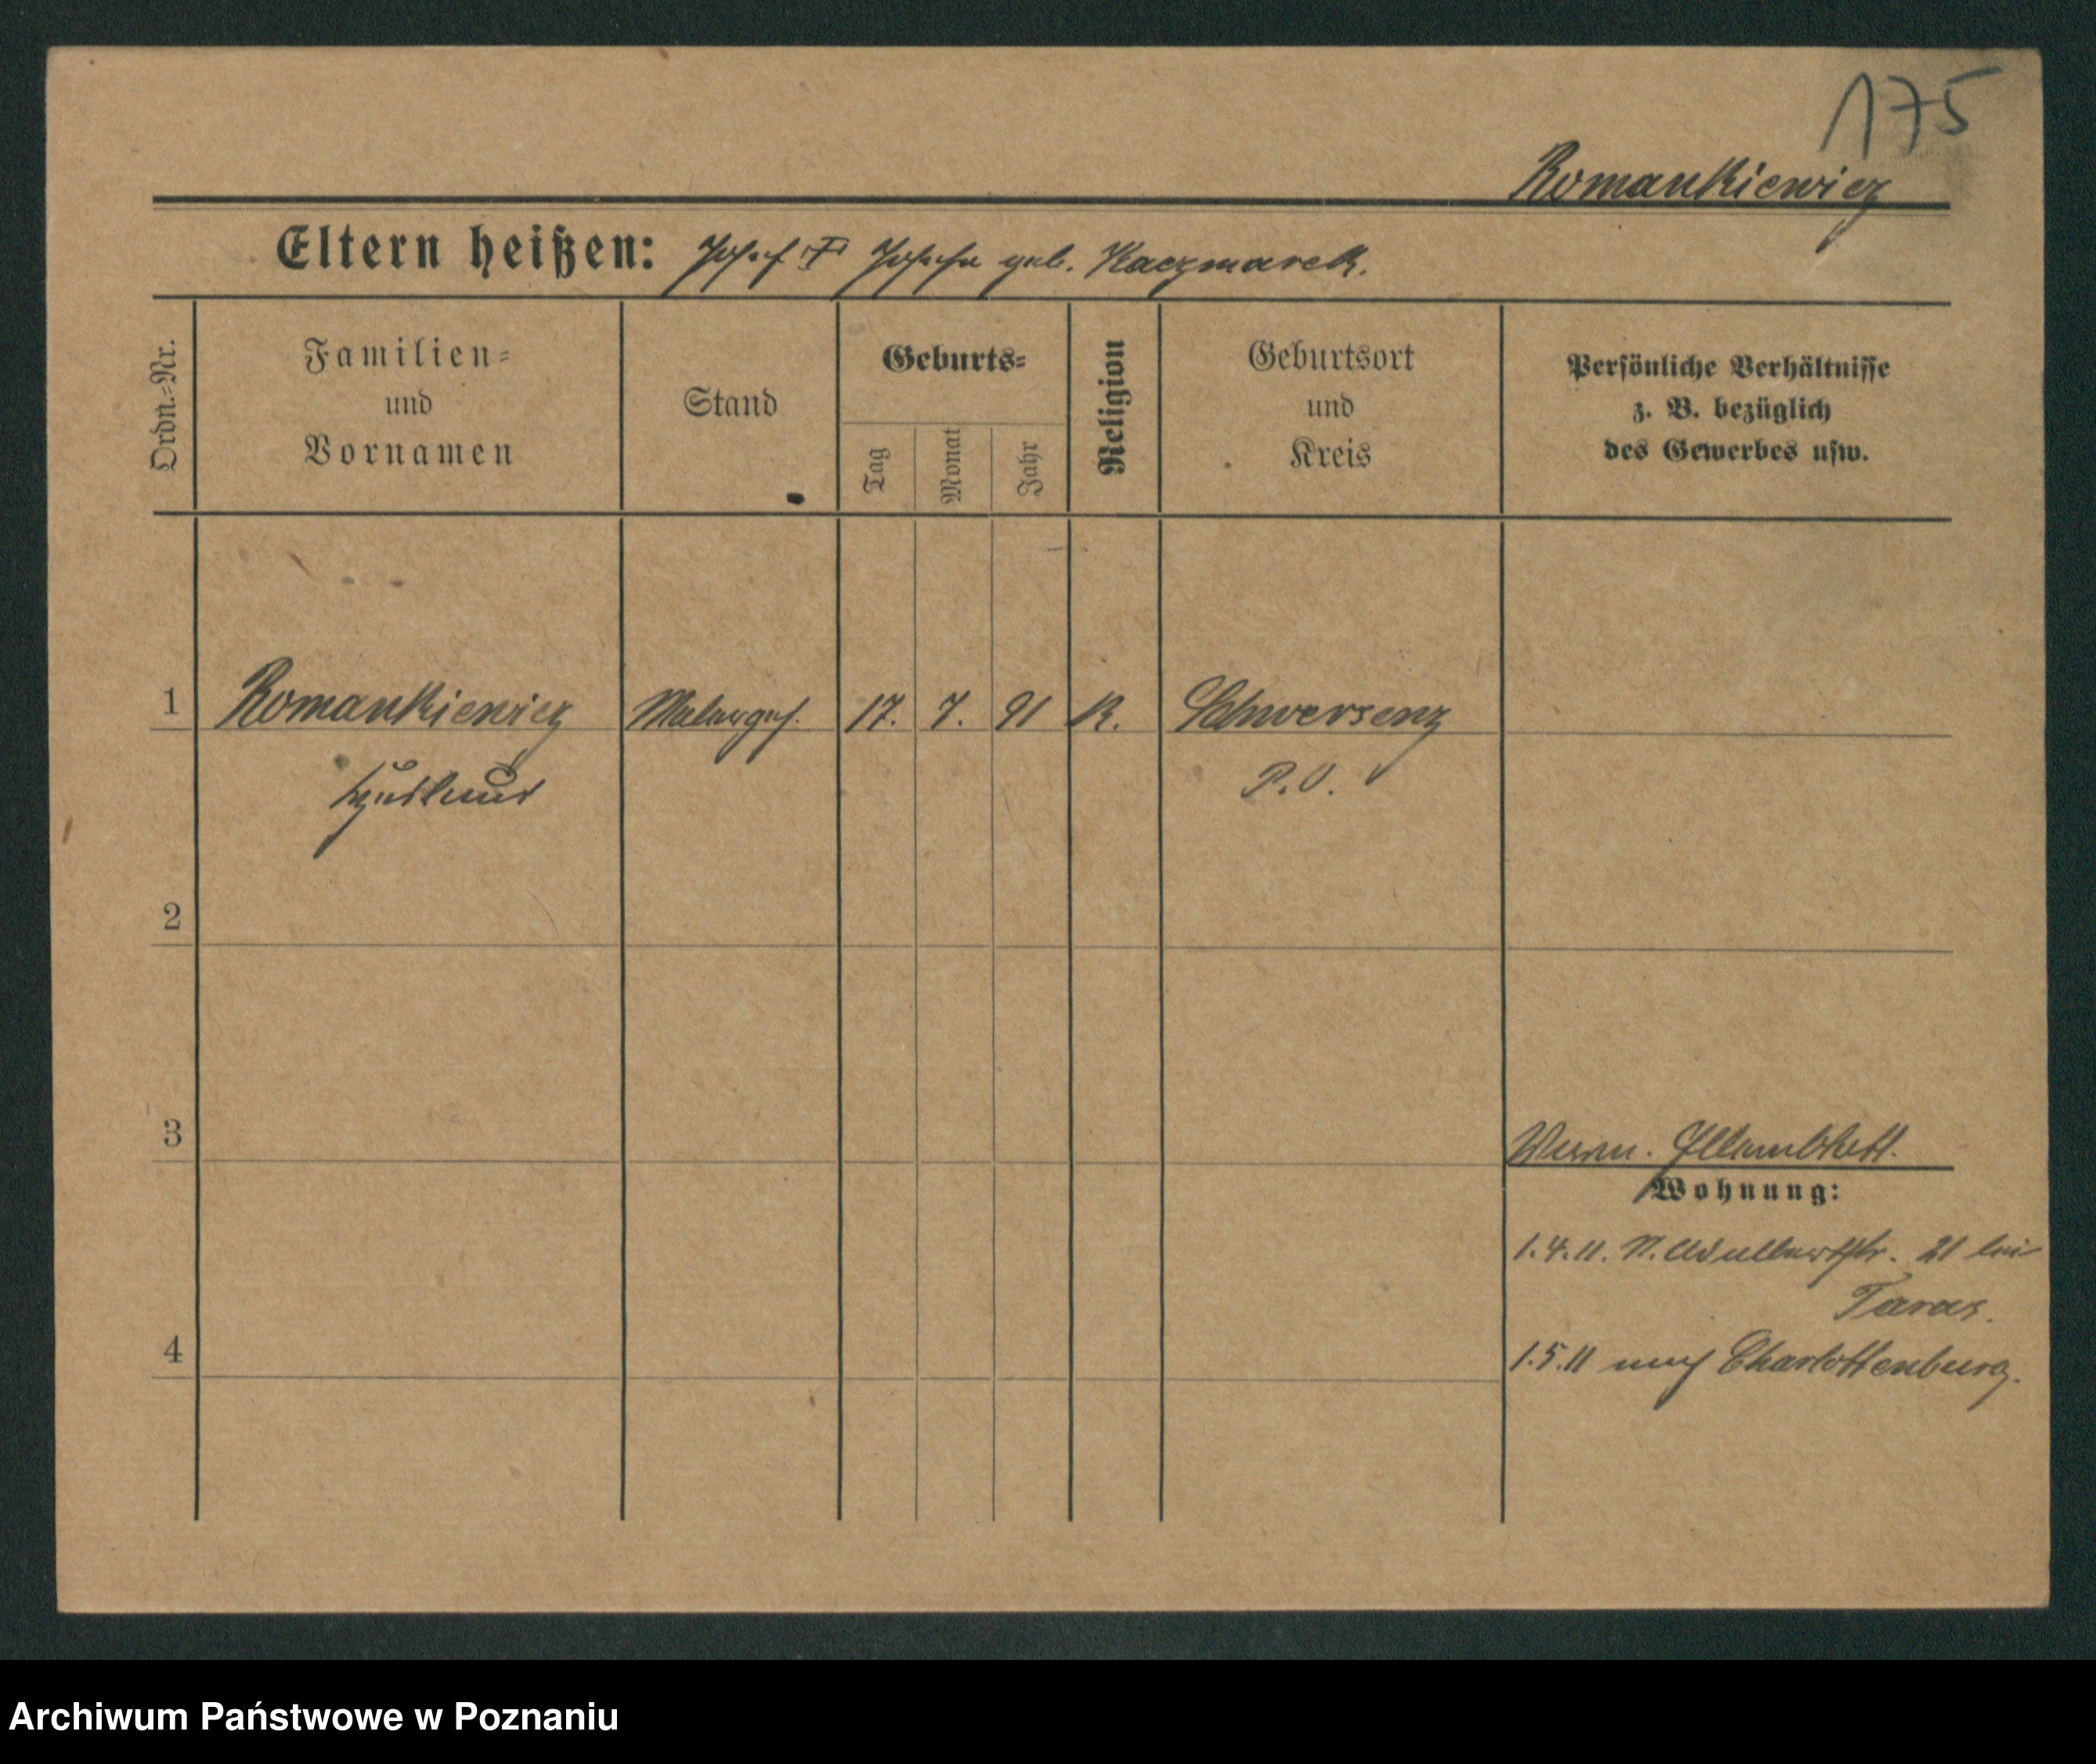 175
Romankiewicz
Eltern heißen: Josef † Josefa geb. Kaczmarek.
Ordn.-Nr.
Familien-
und
Vornamen
Stand
Geburts-
Tag
Monat
Jahr
Religion
Geburtsort
und
Kreis
Persönliche Verhältnisse
z. B. bezüglich
des Gewerbes usw.
1 Romankiewicz Malergeh. 17. 7. 91 K. Schwersenz
P. O.
2
3
Wohnung:
1.4.11. St. Adalbertstr. 21 bei
Taras.
4
1.5.11 nach Charlottenburg.
Archiwum Państwowe w Poznaniu